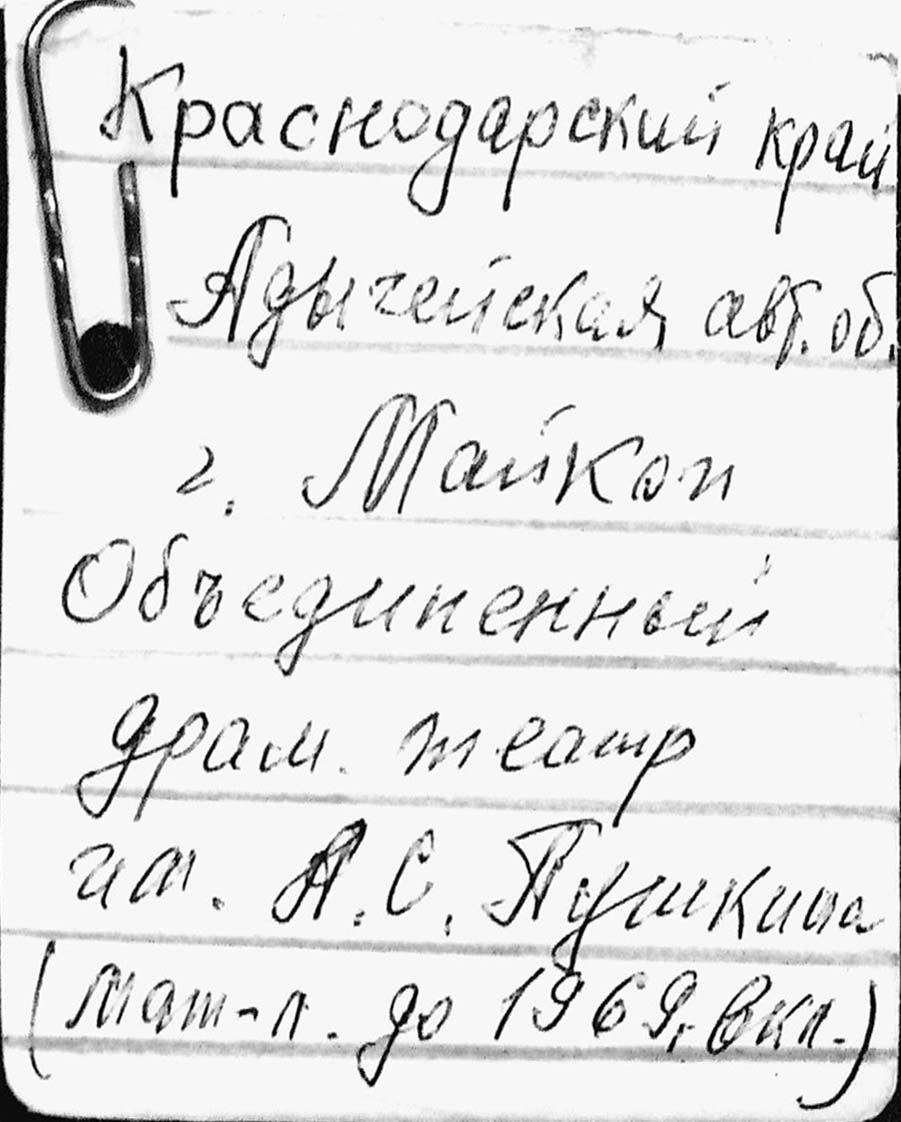 Краснодарский край
Адыгейская авт. об.
г. Майкоп
Объединенный
драм. театр
им. А. С. Пушкина
(мат-л. до 1969г. вкл.)